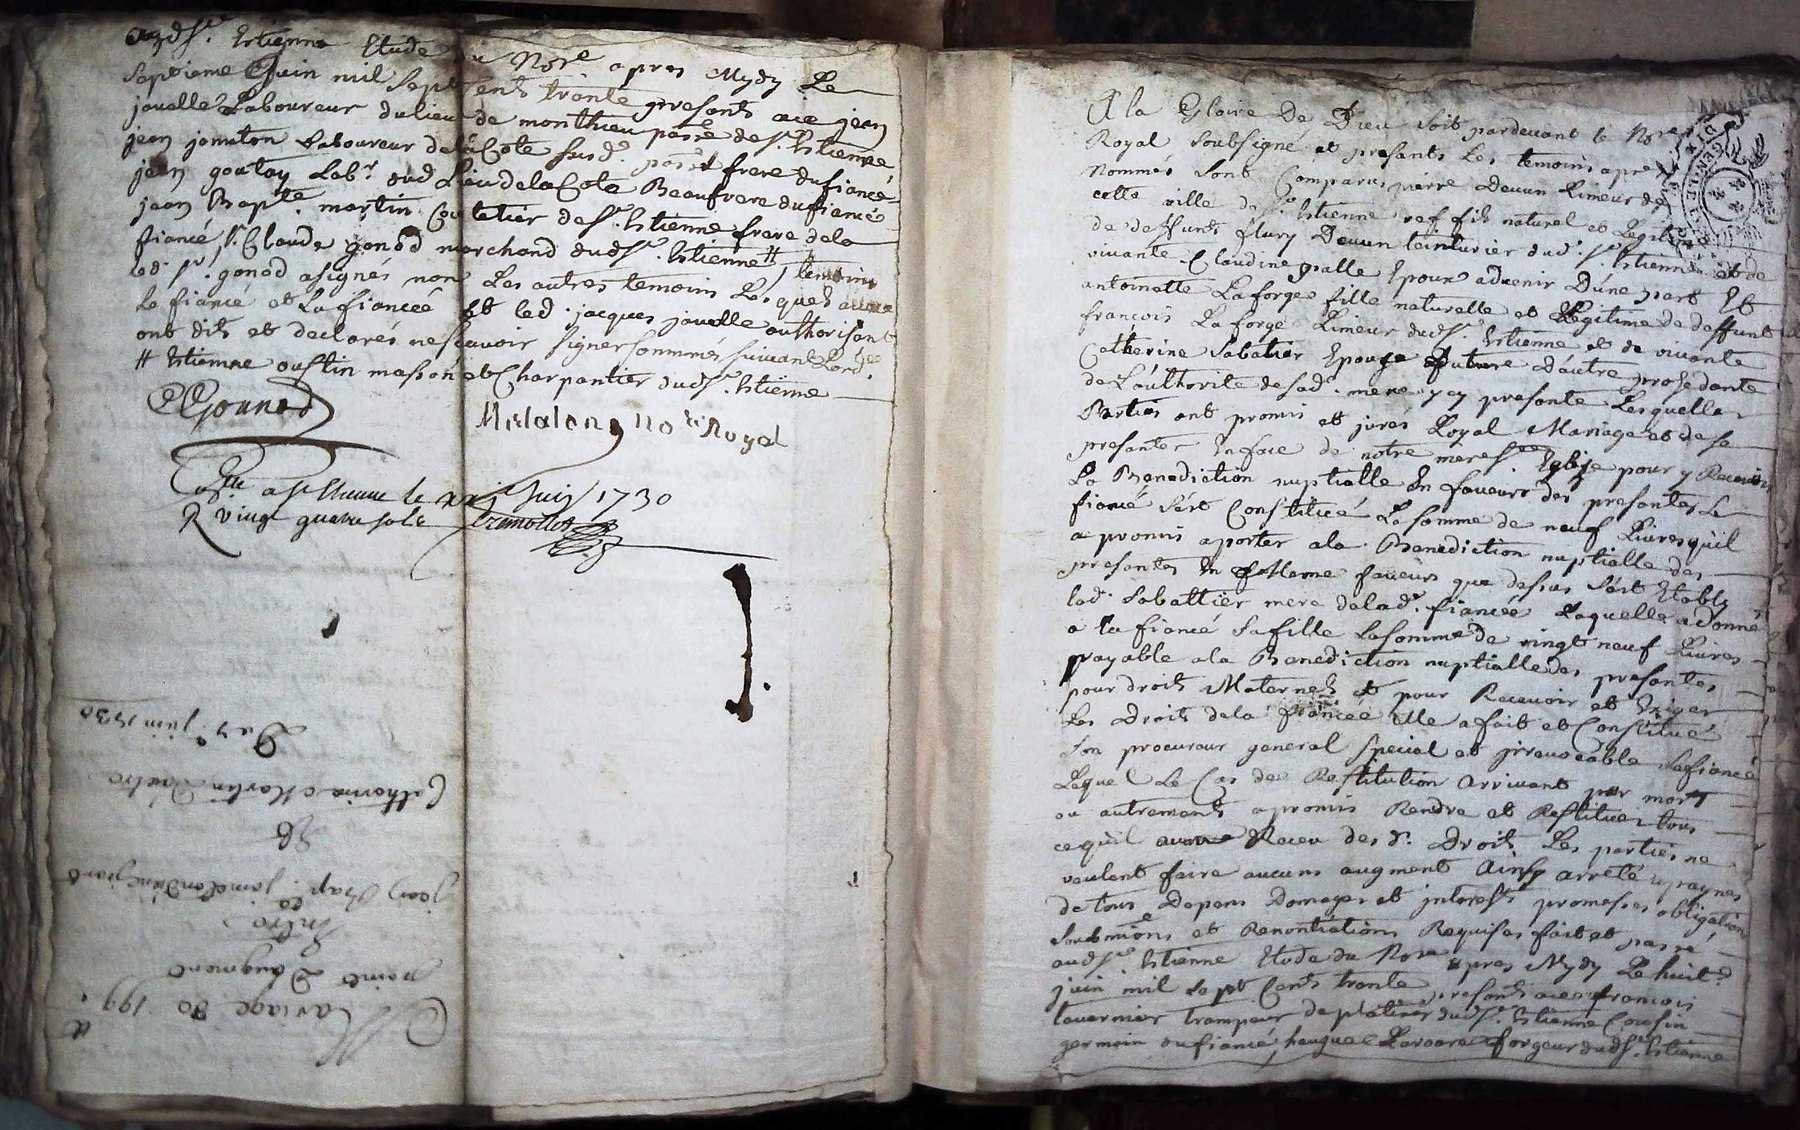 audSt. Estienne Etude du Nore apres Mydy Le
septieme Juin mil Sept Cents trante presents aie jean
jouelle Laboureur du lieu de monthieu passe de St. Estienne
jean jometon Laboureur de la Cote susd. frere du fiancé
jean goutay Labr. dud. Lieu de la Cote Beaufrere du fiancé
jean Bapte. martin Coutelier de St. Estienne frere de la
fiancé, Sr. Claude gonod marchand dudSt. Estienne # temoins
led. Sr. gonod a signés non Les autres temoins Lesquels
Le fiancé et La fianceé Et led. jacques jouelle authorisant
ont dits et declarés ne scavoir signer sommmés suivant Lord.
# Estienne oustin masson et Charpantier dudSt. Estienne
CGonnod
Notre Royal
a St Etienne le xxj Juin 1730
R vingt quatre sols
Du 7e. juin 1730
Catherine Martin D'autre
Et
jean Bap. jometon D'une part
Entre
point D'augment
Mariage 80 199
A la Gloire De Dieu soit pardevant le Nore
Royal Soubsigné et presants Les temoins apres
Nommés sont Comparus pierre Deuun Limeur de
cette ville de St. Estienne fils naturel et Legit
de deffunt flury Deuun teinturier dud. St. Estienne et de
vivante Claudine galle Epoux advenir D'une part Et
antoinette Laforge fille naturelle et Legitime de deffunt
francois Laforge Limeur dudSt. Estienne et de vivante
Catherine Sabatier Epouze future D'autre prosedante
de L'authorite de sad. mere y cy presente Lesquelles
Parties ont promis et jurés Loyal Mariage et de se
presenter En face de notre mere Ste Eglize pour y Recevoir
La Benediction nuptialle En faveurs des presentes Le
fiancé s'est Constitué La somme de neuf Livres qu'il
a promis aporter a la Benediction nuptialle des
presentes En faveurs que dessus s'est Etably
lad. Sabattier mere de lad. fiancée Laquelle a donné
a la fiancé sa fille La somme de vingt neuf Livres
payable a la Benediction nuptialle des presentes
pour droits Maternels et pour Recevoir et Exiger
Les Droits de la fiancée Elle a fait et Constitué
Son procureur general special et jrrevocable Le fiancé
Lequel Le Cas de Restitution arrivant par mort
ou autrement a promis Rendre et Restituer tous
ce qu'il aura Receu des d. Droits Les parties ne
veulent faire aucuns augment Ainsy arreté
de tous Depens Domages et jnterests promesses obligation
Soubmions et Renontiations Requises fait et passé
audSt. Estienne Etude du Nore apres Mydy Le huite.
juin mil Sept Cents trante presents aies francois
tavernier trampeur de platines dudSt. Estienne Cousin
germain du fiancé, forgeur dudSt. Estienne